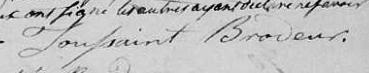 ont signé les autres ayant déclaré ne savoir
Toussaint Brodeur.